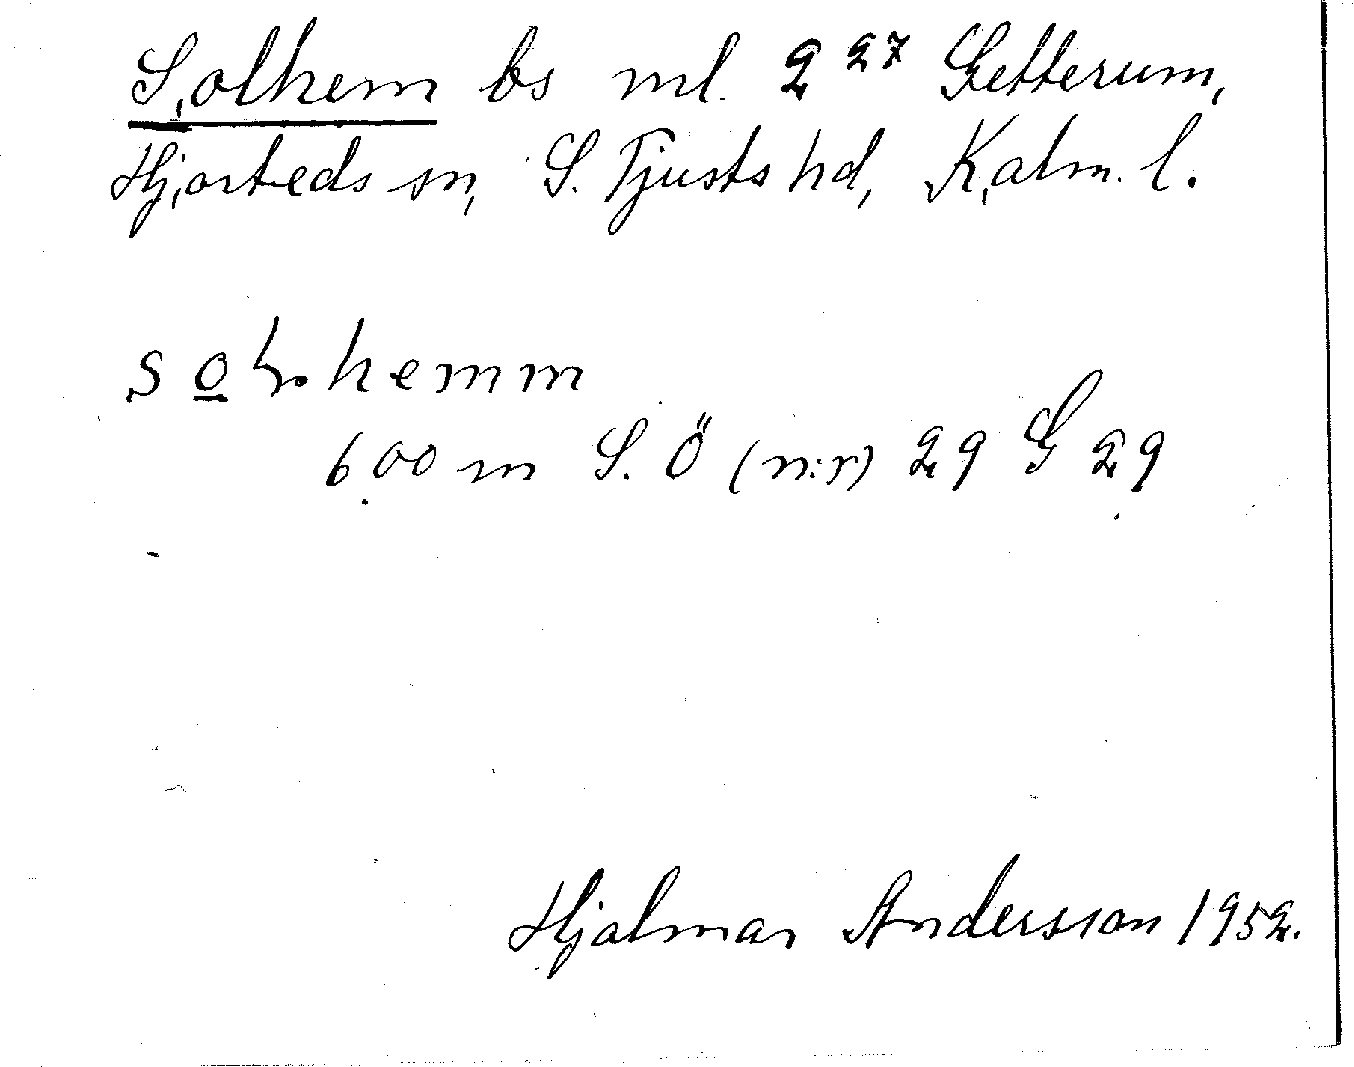 Solhem bs ml. 2²⁷ Getterum,
Hjorteds sn, S. Tjusts hd, Kalm. l.
so̲l.hemm
600 m S.Ö (n:r) 29 G 29
Hjalmar Andersson 1952.